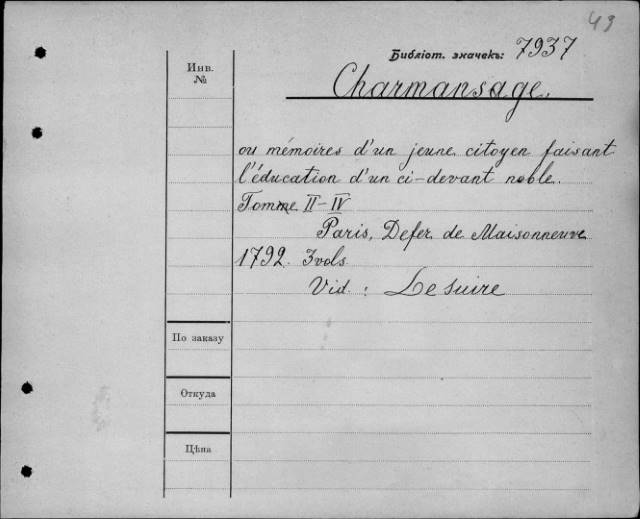 49
Библіот. значекъ: 7937
Инв.
№
Charmansage.
ou mémoires d'un jeune citoyen faisant
l'éducation d'un ci-devant noble.
Tomme II-IV
Paris, Defer de Maisonneuve
1792. 3vols
Vid. : Lesuire
По заказу
Откуда
Цѣна